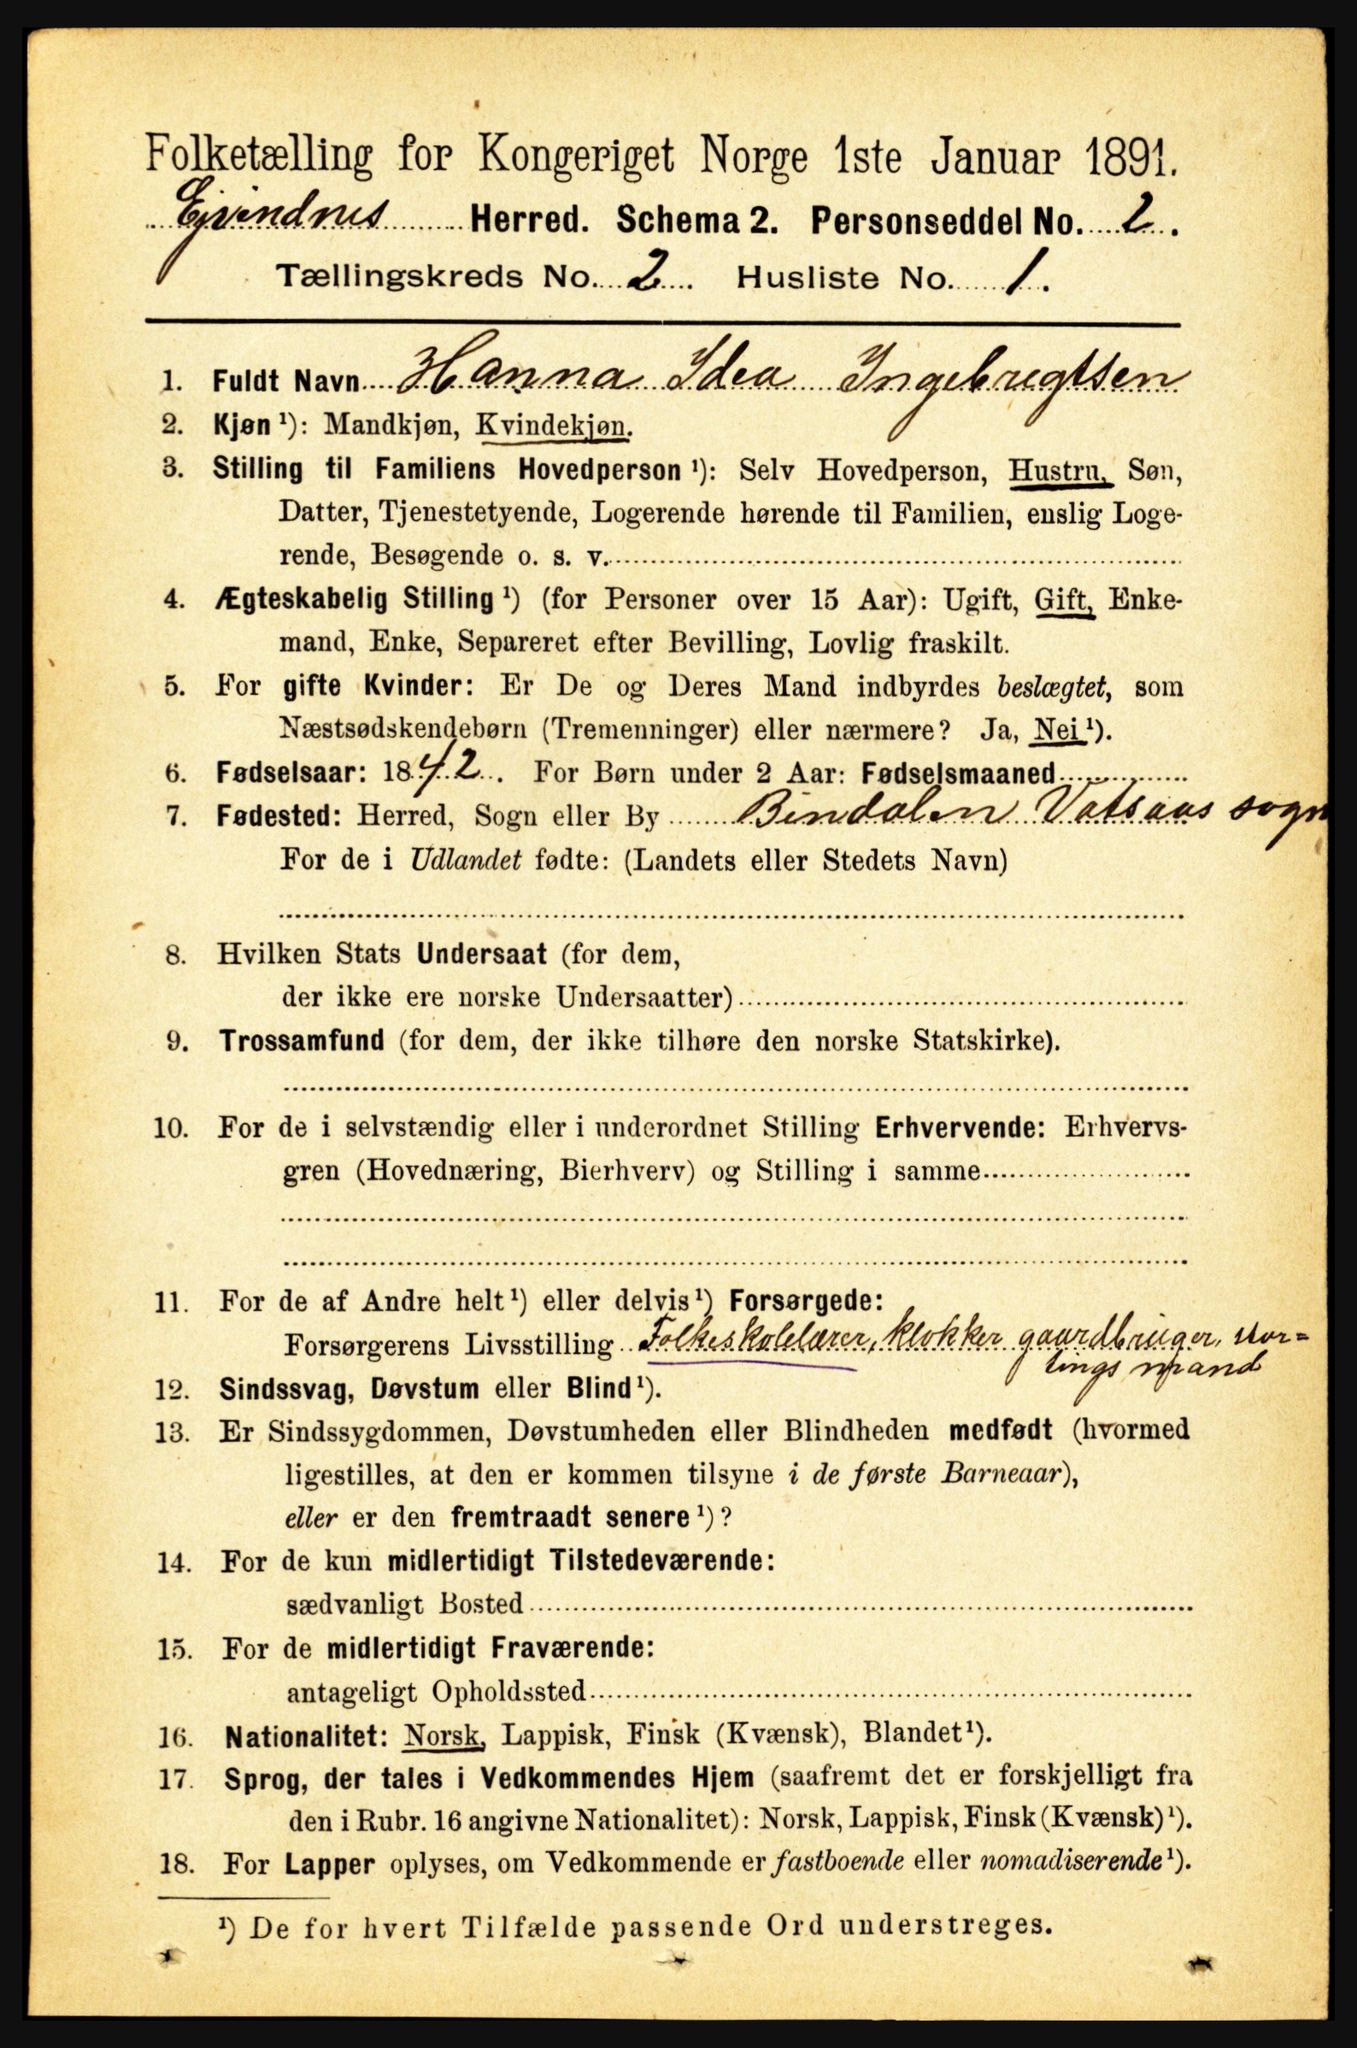 Folketælling for Kongeriget Norge 1ste Januar 1891.
Ejvindnes Herred. Schema 2. Personseddel No. 2.
Tællingskreds No. 2. Husliste No. 1.
1. Fuldt Navn Hanna Idea Ingebregtsen
2. Kjøn ¹): Mandkjøn, Kvindekjøn.
3. Stilling til Familiens Hovedperson ¹): Selv Hovedperson, Hustru, Søn,
Datter, Tjenestetyende, Logerende hørende til Familien, enslig Loge-
rende, Besøgende o. s. v.
4. Ægteskabelig Stilling ¹) (for Personer over 15 Aar): Ugift, Gift, Enke-
mand, Enke, Separeret efter Bevilling, Lovlig fraskilt.
5. For gifte Kvinder: Er De og Deres Mand indbyrdes beslægtet, som
Næstsødskendebørn (Tremenninger) eller nærmere? Ja, Nei ¹).
6. Fødselsaar: 1842. For Børn under 2 Aar: Fødselsmaaned
7. Fødested: Herred, Sogn eller By Bindalen Vatsaas sogn
For de i Udlandet fødte: (Landets eller Stedets Navn)
8. Hvilken Stats Undersaat (for dem,
der ikke ere norske Undersaatter)
9. Trossamfund (for dem, der ikke tilhøre den norske Statskirke).
10. For de i selvstændig eller i underordnet Stilling Erhvervende: Erhvervs-
gren (Hovednæring, Bierhverv) og Stilling i samme
11. For de af Andre helt ¹) eller delvis ¹) Forsørgede:
Forsørgerens Livsstilling Folkeskolelærer, klokker gaardbruger, stor=
tings mand
12. Sindssvag, Døvstum eller Blind ¹).
13. Er Sindssygdommen, Døvstumheden eller Blindheden medfødt (hvormed
ligestilles, at den er kommen tilsyne i de første Barneaar),
eller er den fremtraadt senere ¹)?
14. For de kun midlertidigt Tilstedeværende:
sædvanligt Bosted
15. For de midlertidigt Fraværende:
antageligt Opholdssted
16. Nationalitet: Norsk, Lappisk, Finsk (Kvænsk), Blandet ¹).
17. Sprog, der tales i Vedkommendes Hjem (saafremt det er forskjelligt fra
den i Rubr. 16 angivne Nationalitet): Norsk, Lappisk, Finsk (Kvænsk) ¹).
18. For Lapper oplyses, om Vedkommende er fastboende eller nomadiserende ¹).
¹) De for hvert Tilfælde passende Ord understreges.